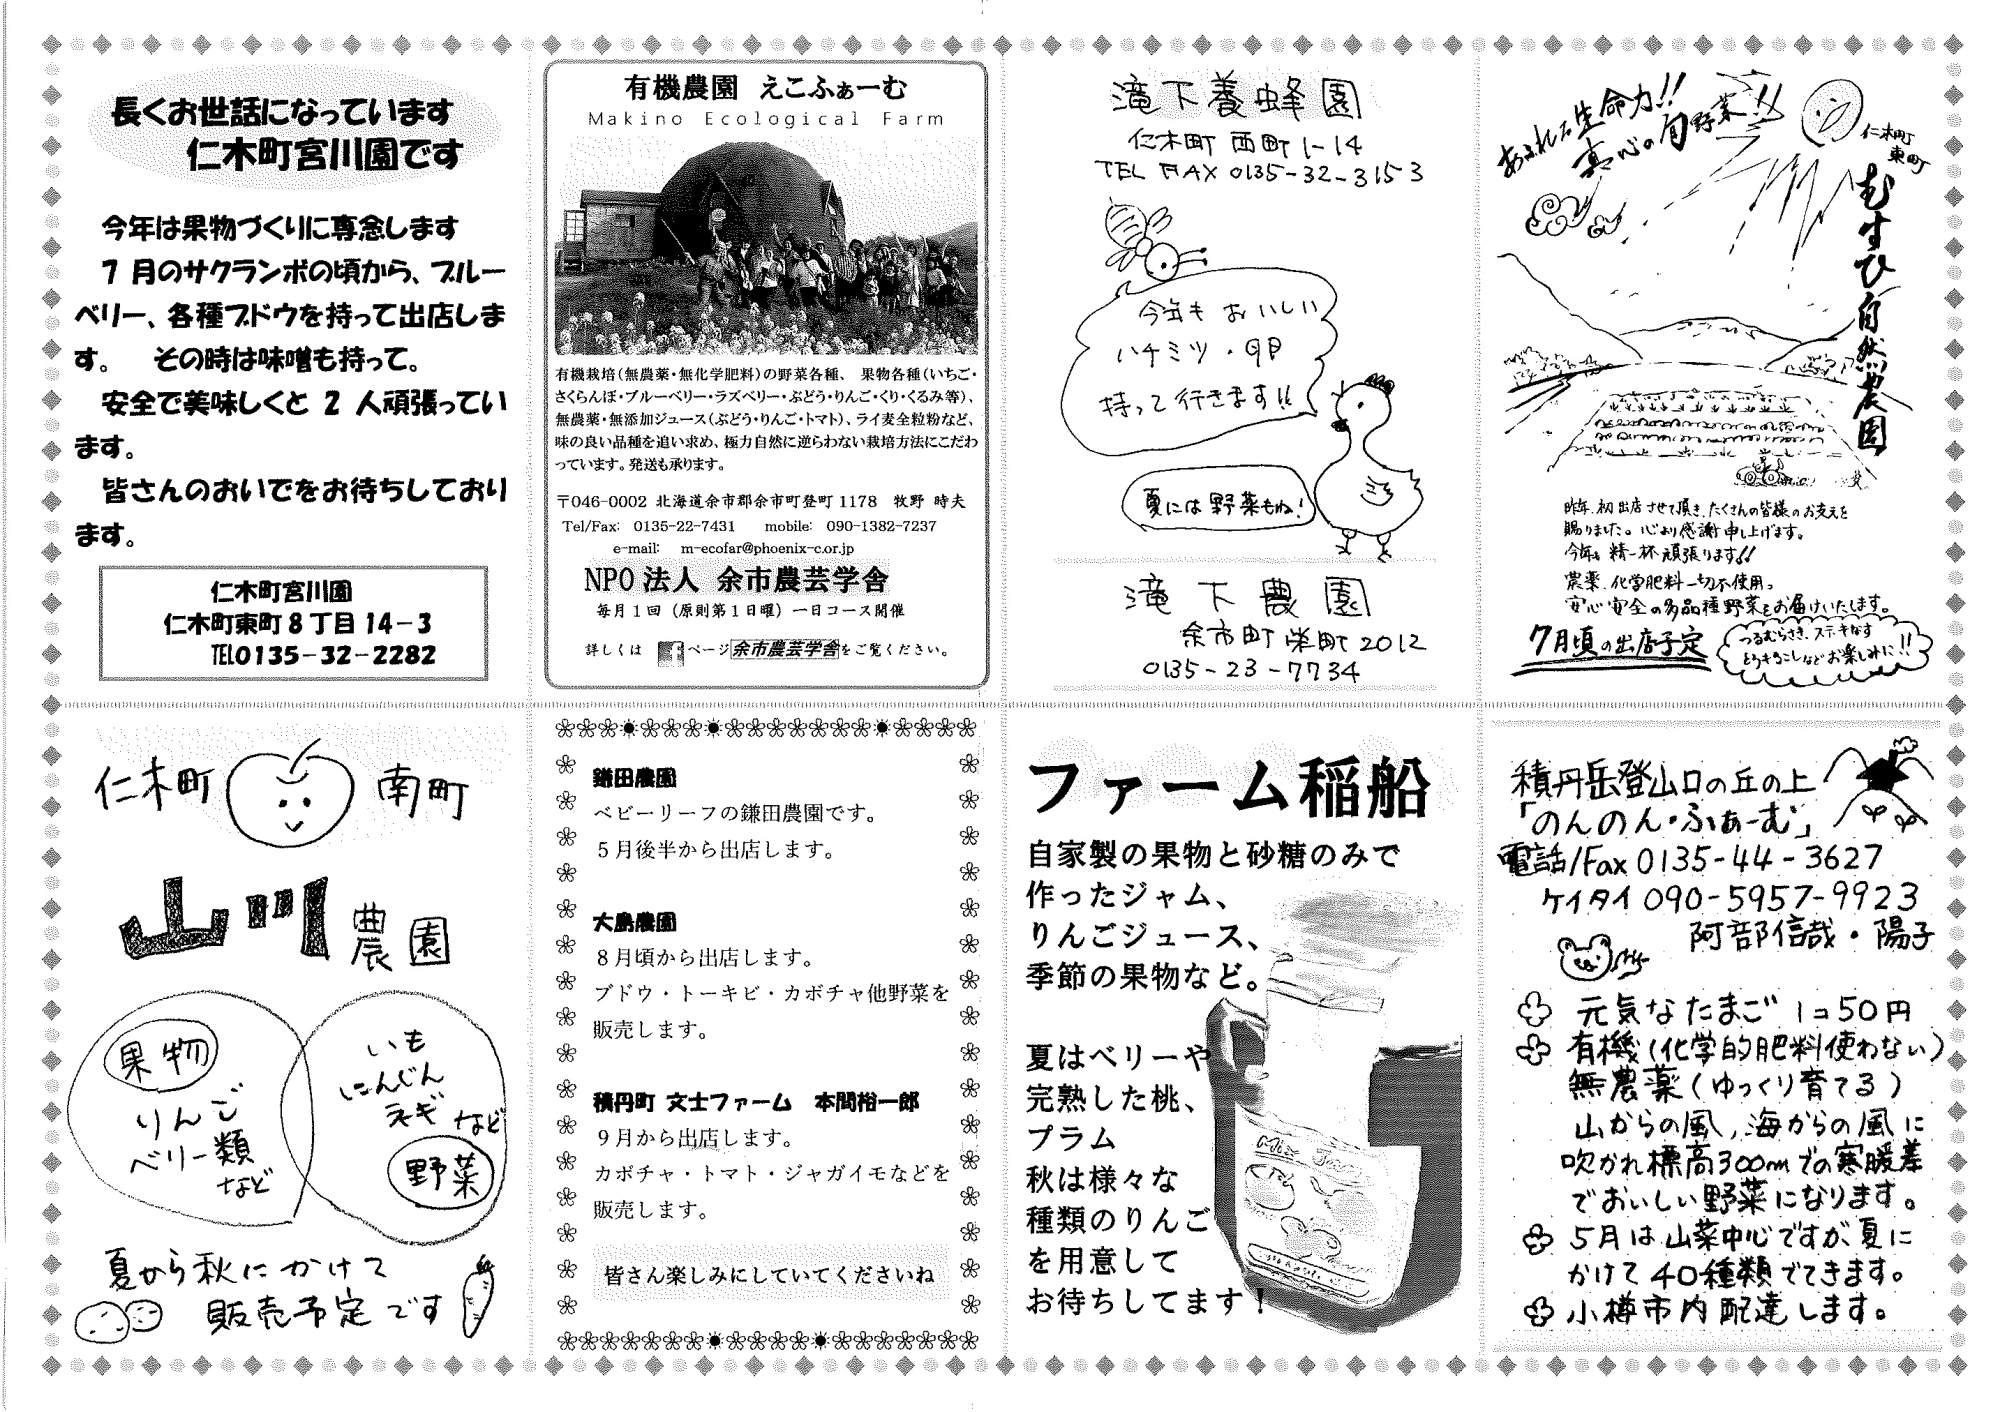 長くお世話になっています
仁木町宮川園です
今年は果物づくりに専念します
7 月のサクランボの頃から、ブルー
ベリー、各種ブドウを持って出店しま
す。 その時は味噌も持って。
安全で美味しくと 2 人頑張ってい
ます。
皆さんのおいでをお待ちしており
ます。
仁木町宮川園
仁木町東町 8 丁目 14-3
TEL0135-32-2282
有機農園 えこふぁーむ
Makino Ecological Farm
有機栽培(無農薬・無化学肥料)の野菜各種、 果物各種(いちご・
さくらんぼ・ブルーベリー・ラズベリー・ぶどう・りんご・くり・くるみ等)、
無農薬・無添加ジュース(ぶどう・りんご・トマト)、ライ麦全粒粉など、
味の良い品種を追い求め、極力自然に逆らわない栽培方法にこだわ
っています。発送も承ります。
〒046-0002 北海道余市郡余市町登町 1178 牧野 時夫
Tel/Fax: 0135-22-7431 mobile: 090-1382-7237
e-mail: m-ecofar@phoenix-c.or.jp
NPO 法人 余市農芸学舎
毎月 1 回 (原則第 1 日曜) 一日コース開催
詳しくは f ページ余市農芸学舎をご覧ください。
滝下養蜂園
仁木町 西町 1-14
TEL FAX 0135-32-3153
今年も おいしい
ハチミツ・卵
持って行きます!!
夏には野菜もね!
滝下農園
余市町 栄町 2012
0135-23-7734
あふれる生命力!!
真心の旬野菜!!
仁木町
東町
むすひ自然農園
昨年、初出店させて頂き、たくさんの皆様のお支えを
賜りました。心より感謝申し上げます。
今年も精一杯頑張ります!!
農薬、化学肥料一切不使用。
安心安全の多品種野菜をお届けいたします。
7月頃の出店予定
つるむらさき、ステーキなす
とうもろこしなどお楽しみに!!
仁木町 南町
山川農園
果物
りんご
ベリー類
など
いも
にんじん
ネギ など
野菜
夏から秋にかけて
販売予定です
鎌田農園
ベビーリーフの鎌田農園です。
5月後半から出店します。
大島農園
8月頃から出店します。
ブドウ・トーキビ・カボチャ他野菜を
販売します。
積丹町 文士ファーム 本間裕一郎
9月から出店します。
カボチャ・トマト・ジャガイモなどを
販売します。
皆さん楽しみにしていてくださいね
ファーム稲船
自家製の果物と砂糖のみで
作ったジャム、
りんごジュース、
季節の果物など。
夏はベリーや
完熟した桃、
プラム
秋は様々な
種類のりんご
を用意して
お待ちしてます!
積丹岳登山口の丘の上
「のんのん・ふぁーむ」
電話/Fax 0135-44-3627
ケイタイ 090-5957-9923
阿部信哉・陽子
元気なたまご 1コ50円
有機(化学的肥料使わない)
無農薬(ゆっくり育てる)
山からの風,海からの風に
吹かれ標高300mでの寒暖差
でおいしい野菜になります。
5月は山菜中心ですが、夏に
かけて40種類でてきます。
小樽市内配達します。